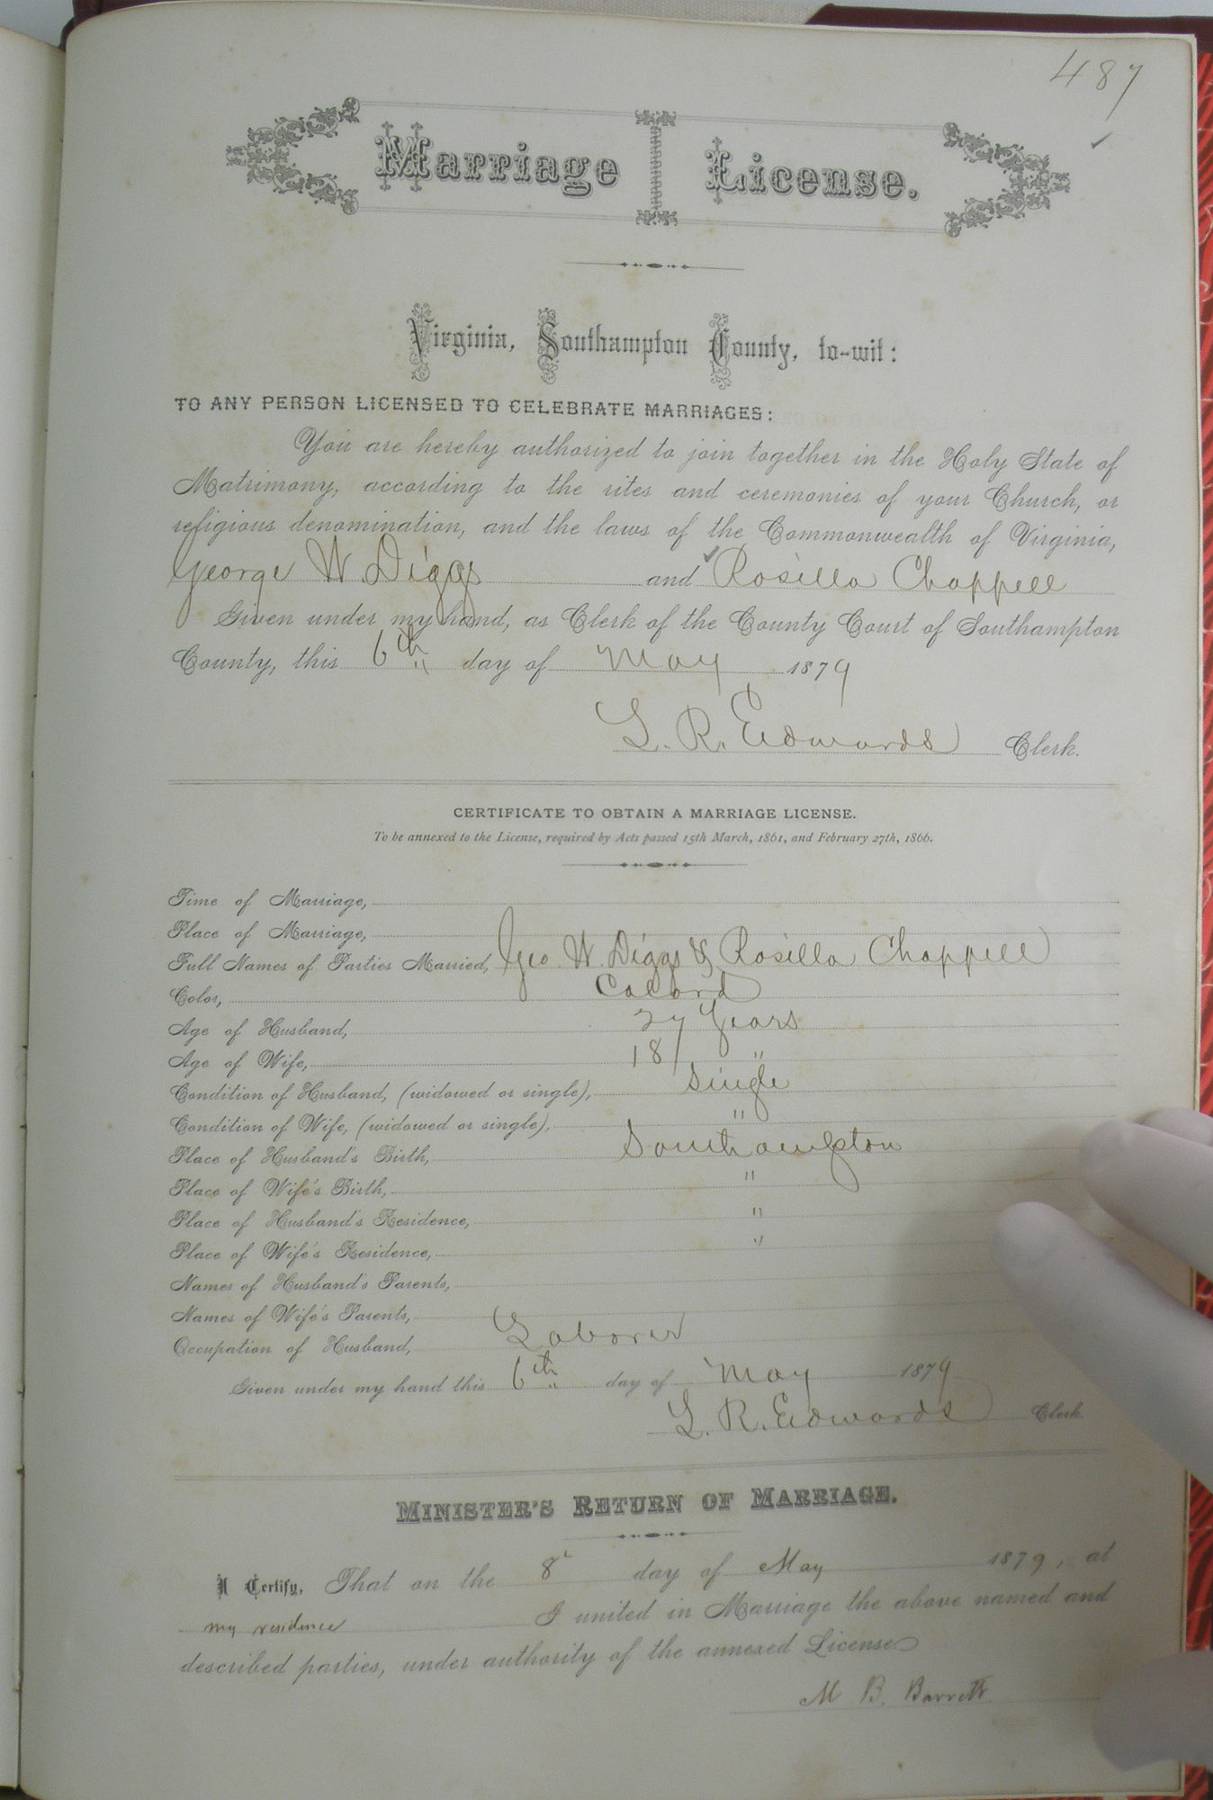 487
Marriage License.
Virginia, Southampton County, to-wit:
TO ANY PERSON LICENSED TO CELEBRATE MARRIAGES:
You are hereby authorized to join together in the Holy State of
Matrimony, according to the rites and ceremonies of your Church, or
religious denomination, and the laws of the Commonwealth of Virginia,
George W. Diggs and Rosilla Chappell
Given under my hand, as Clerk of the County Court of Southampton
County, this 6th day of May 1879
L. R. Edwards Clerk.
CERTIFICATE TO OBTAIN A MARRIAGE LICENSE.
To be annexed to the License, required by Acts passed 15th March, 1861, and February 27th, 1866.
Time of Marriage,
Place of Marriage,
Full Names of Parties Married, Geo W. Diggs & Rosilla Chappell
Color, Colord
Age of Husband, 27 Years
Age of Wife, 18 "
Condition of Husband, (widowed or single), Single
Condition of Wife, (widowed or single), "
Place of Husband's Birth, Southampton
Place of Wife's Birth, "
Place of Husband's Residence, "
Place of Wife's Residence, "
Names of Husband's Parents,
Names of Wife's Parents,
Occupation of Husband, Laborer
Given under my hand this 6th day of May 1879
L. R. Edwards Clerk
MINISTER'S RETURN OF MARRIAGE.
I Certify, That on the 8 day of May 1879, at
my residence I united in Marriage the above named and
described parties, under authority of the annexed License
M B. Barrett